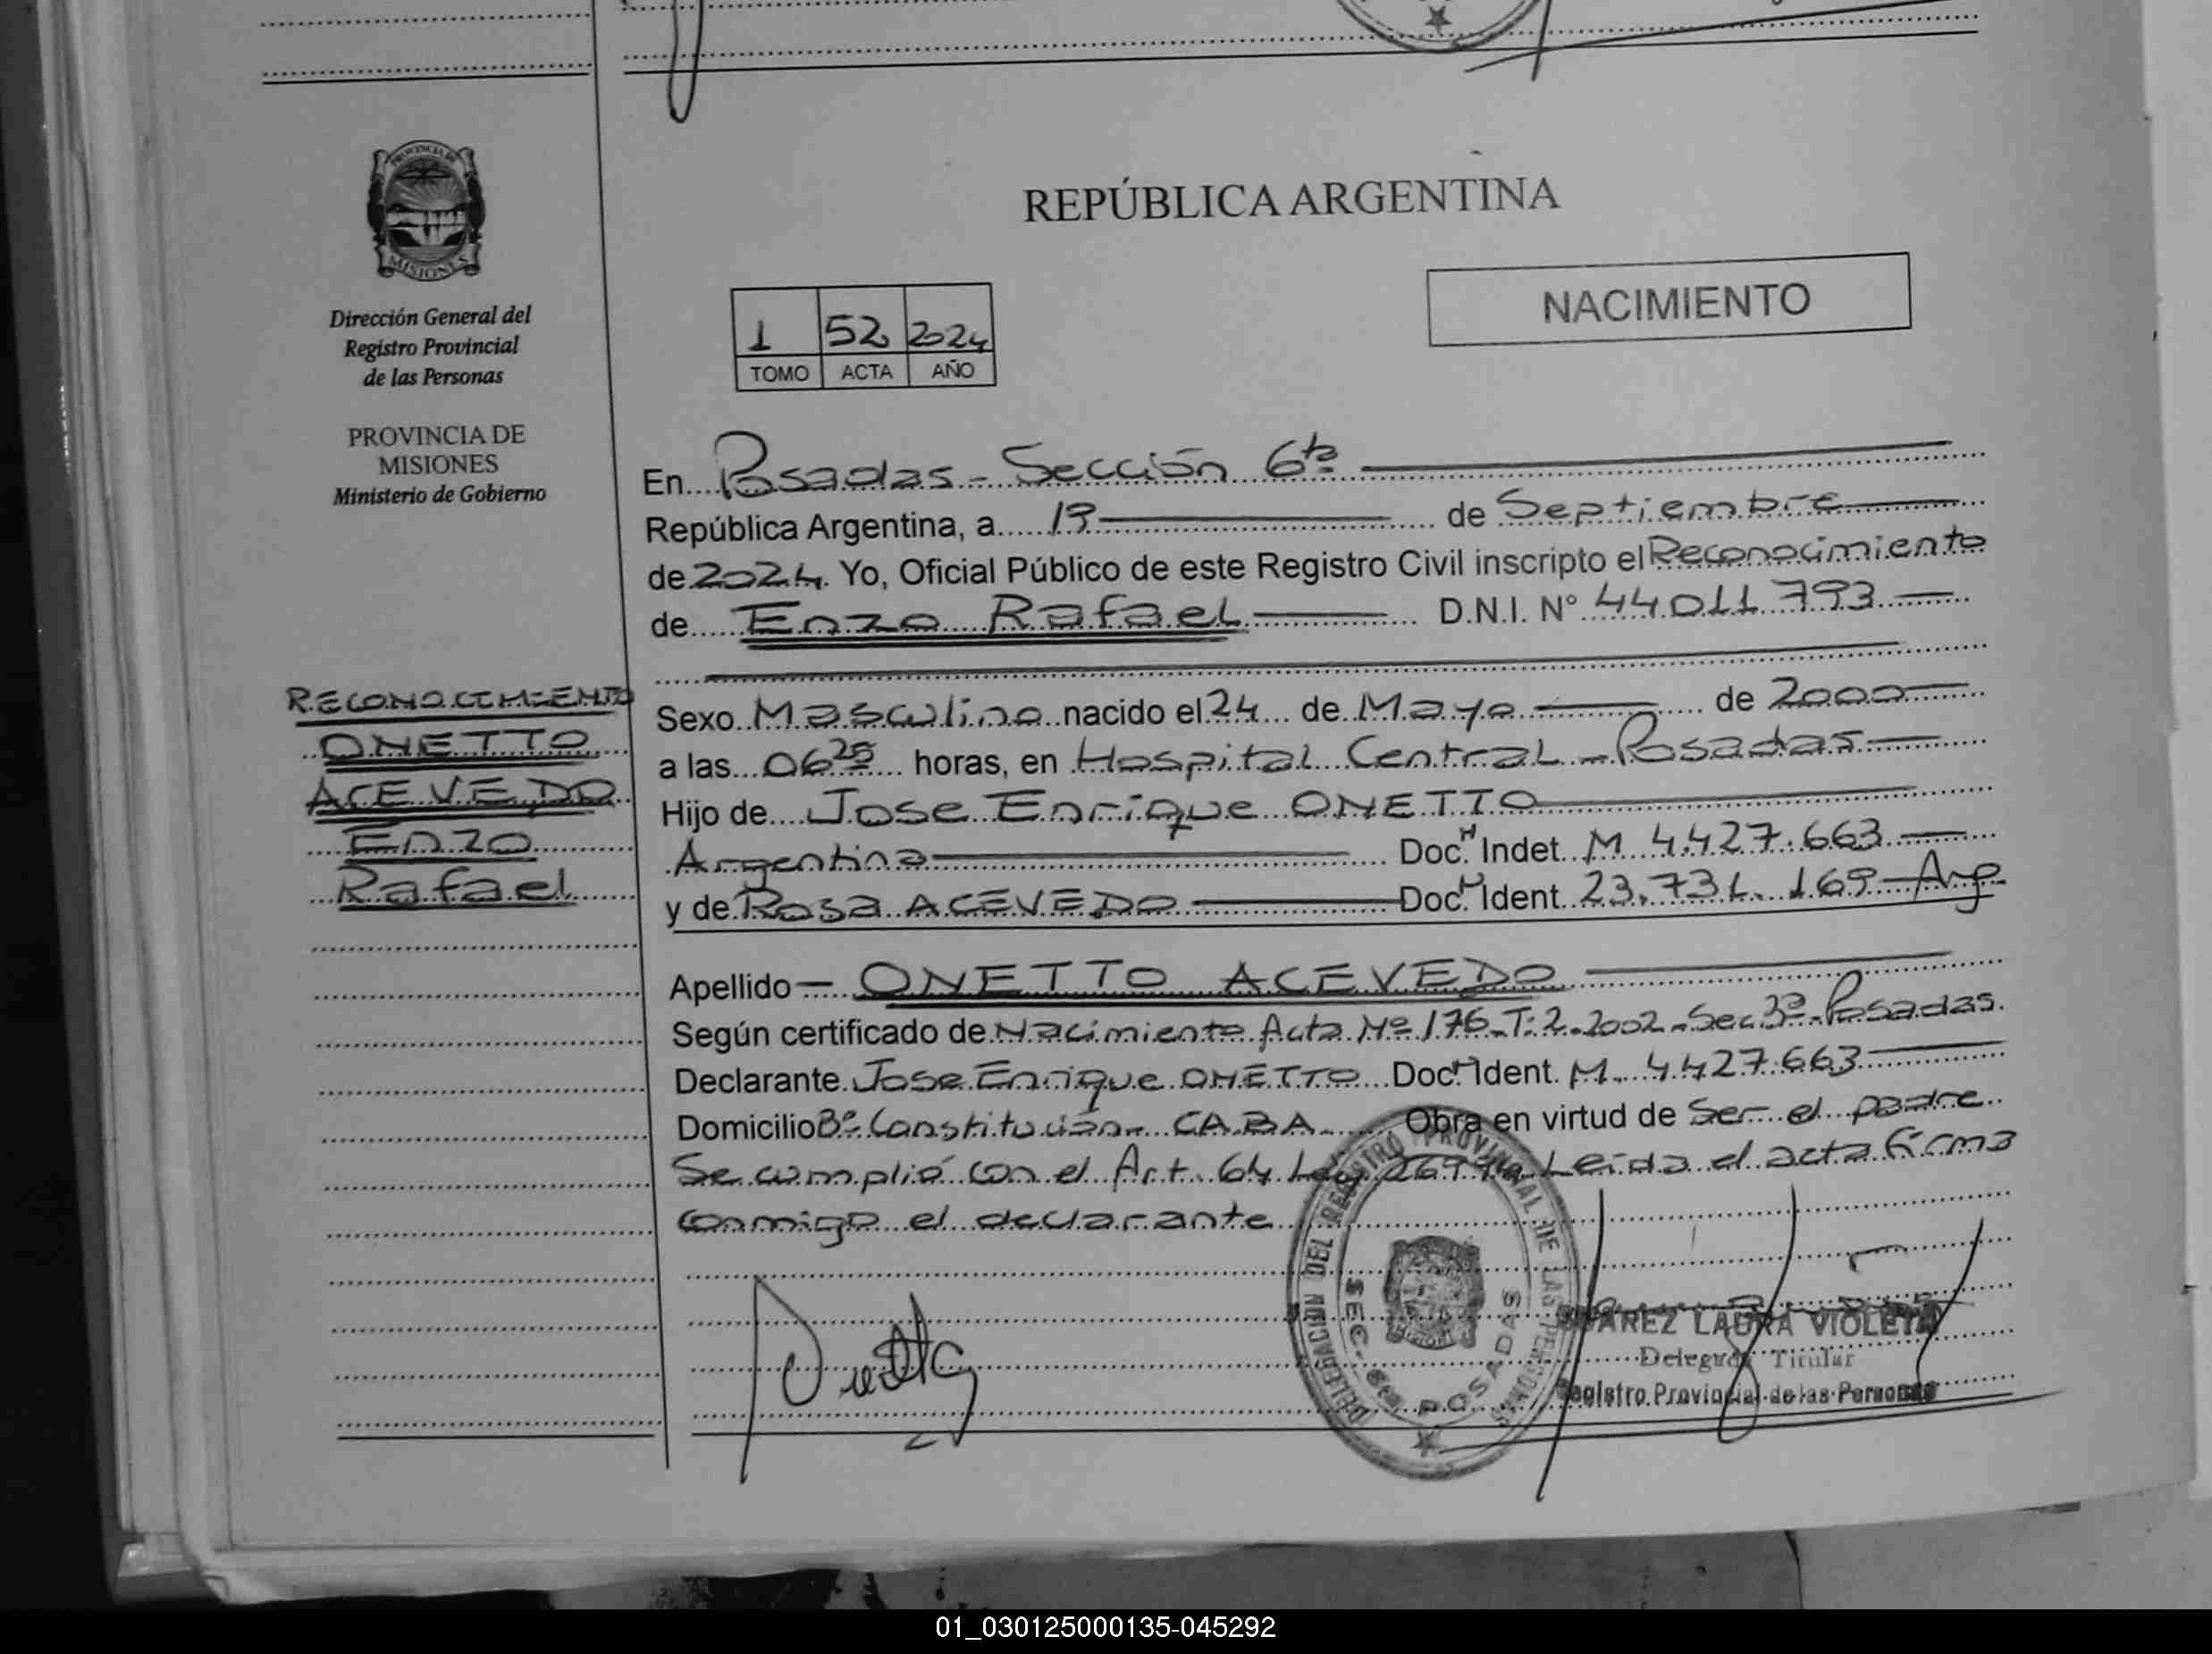 PROVINCIA DE
MISIONES
Dirección General del
Registro Provincial
de las Personas
PROVINCIA DE
MISIONES
Ministerio de Gobierno
RECONOCIMIENTO
ONETTO
ACEVEDO
Enzo
Rafael
REPÚBLICA ARGENTINA
NACIMIENTO
1 52 2024
TOMO ACTA AÑO
En Posadas - Sección 6ta
República Argentina, a 19 de Septiembre
de 2024. Yo, Oficial Público de este Registro Civil inscripto el Reconocimiento
de Enzo Rafael D.N.I. N° 44011793
Sexo Masculino nacido el 24 de Mayo de 2000
a las 06 25 horas, en Hospital Central - Posadas
Hijo de Jose Enrique ONETTO
Argentina Doc. N Indet. M 4.427.663
y de Rosa ACEVEDO Doc. N Ident. 23.731.169 Arg
Apellido ONETTO ACEVEDO
Según certificado de Nacimiento Acta Nº 176 - T: 2 - 2002 - Sec 3º - Posadas.
Declarante Jose Enrique ONETTO Doc. N Ident. M. 4.427.663
Domicilio Bº Constitución - CABA Obra en virtud de Ser el padre
Se cumplió con el Art. 64 Ley Leida el acta firma
conmigo el declarante
DELEGACION DEL REGISTRO PROVINCIAL DE LAS PERSONAS
SEC. 6ta POSADAS
SUAREZ LAURA VIOLETA
Delegada Titular
Registro Provincial de las Personas
01_030125000135-045292